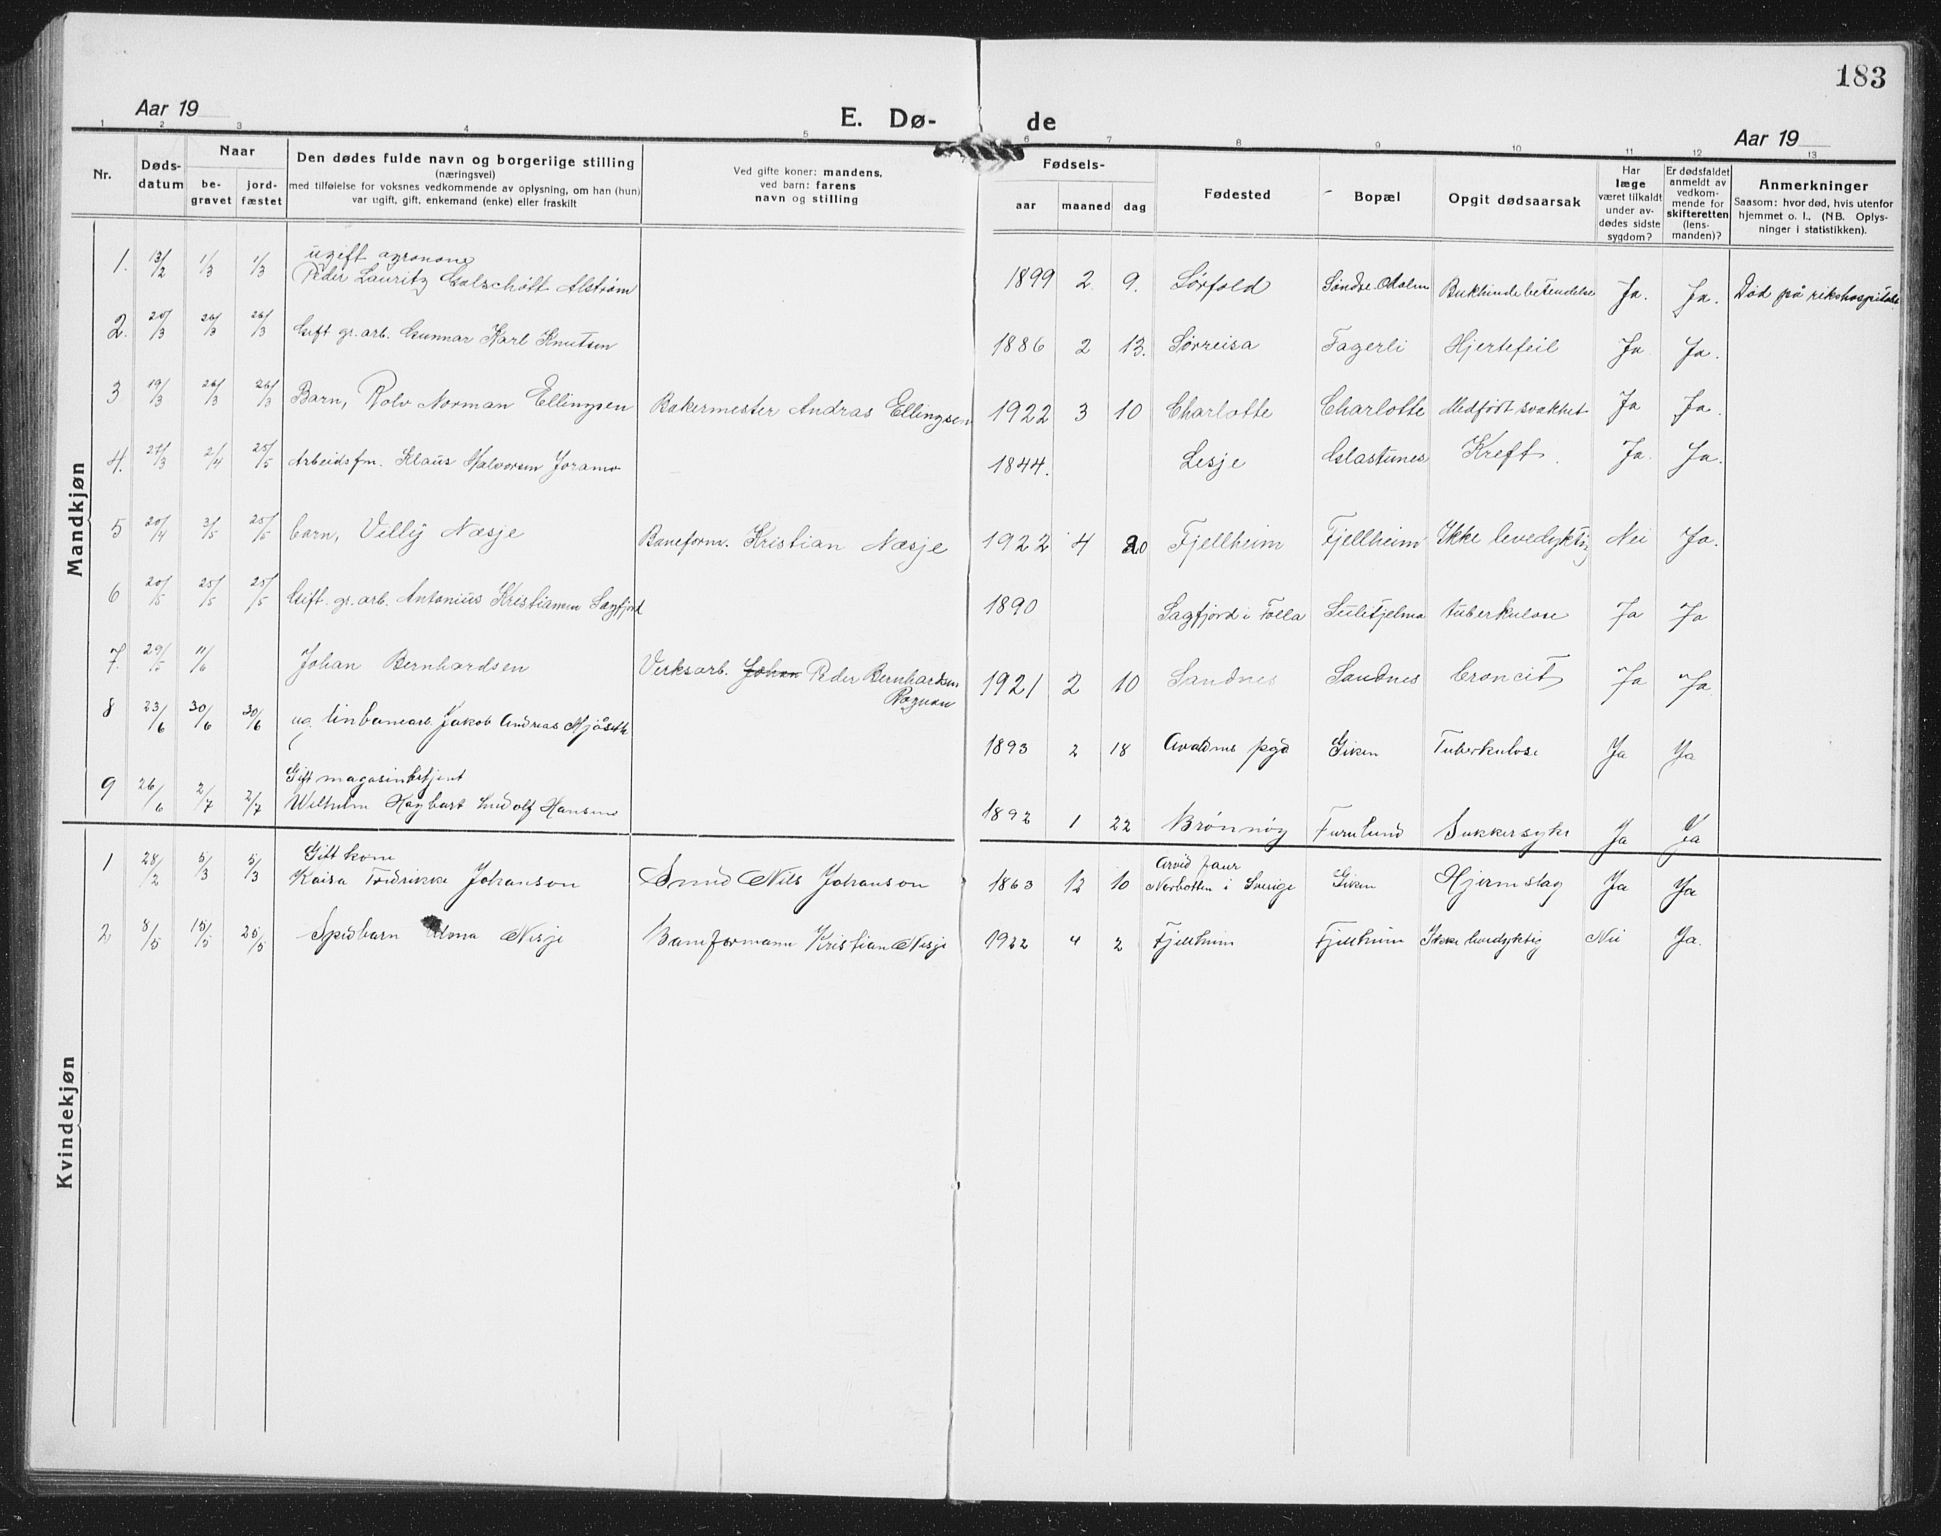 183
Aar 19
E. Dø- de
Aar 19
1 2 3 4 5 6 7 8 9 10 11 12 13
Nr.
Døds-
datum
Naar
be-
gravet
jord-
fæstet
Den dødes fulde navn og borgerlige stilling
(næringsvei)
med tilføielse for voksnes vedkommende av oplysning, om han (hun)
var ugift, gift, enkemand (enke) eller fraskilt
Ved gifte koner: mandens,
ved barn: farens
navn og stilling
Fødsels-
aar maaned dag
Fødested
Bopæl
Opgit dødsaarsak
Har
læge
været tilkaldt
under av-
dødes sidste
sygdom?
Er dødsfaldet
anmeldt av
vedkom-
mende for
skifteretten
(lens-
manden)?
Anmerkninger
Saasom: hvor død, hvis utenfor
hjemmet o. l., (NB. Oplys-
ninger i statistikken).
Mandkjøn
ugift agronom
1. 13/2 1/3 1/3 Peder Lauritz Alstrøm 1899 2. 9. Sørfold Søndre Bukhindebetendelse Ja. Ja. Død på rikshospitalet
2. 20/3 26/3 26/3 Gift gr. arb. Gunnar Karl Knutsen 1886 2 13. Sørreisa Fagerli Hjertefeil Ja Ja.
3 19/3 26/3 26/3 Barn, Rolv Norman Ellingsen Bakermester Andras Ellingsen 1922 3 10 Charlotte Charlotte Medfødt svakhet Ja Ja.
4. 27/3 2/4 25/5 Arbeidsfm. Klaus Halvorsen Joramo 1844. Lesje Glastunes Kreft. Ja. Ja.
5 20/4 3/5 25/5 barn, Villy Næsje Baneform. Kristian Næsje 1922 4 20 Fjellheim Fjellheim Ikke levedyktig Nei Ja.
6 20/5 25/5 25/5 Gift. gr. arb. Antonius Kristiansen Sagfjord 1890 Sagfjord i Folla Sulitjelma tuberkulose Ja Ja
7. 29/5 11/6 Johan Bernhardsen Verksarb. Johan Peder Bernhardsen 1921 2 10 Sandnes Sandnes Ja Ja
Rognan
8 23/6 30/6 30/6 ug. linbanearb. Jakob Andreas Mjåseth 1893 2 18 pgd Giken Tuberkulose Ja Ja
Gift magasinbetjent
9 26/6 2/7 2/7 Wilhelm Hagbart Ludolf Hansen 1892 1 22 Brønnøy Furulund Sukkersyke Ja Ja
Kvindekjøn
Gift kone Arvidsjaur
1 28/2 5/3 5/3 Kaisa Fredrikke Johanson Smed Nils Johanson 1863 12 10 Norbotten i Sverige Giken Hjerneslag Ja Ja
2 8/5 15/5 25/5 Spedbarn Nesje Baneformann Kristian Nesje 1922 4 2 Fjellheim Fjellheim Ikke levedyktig Nei Ja.